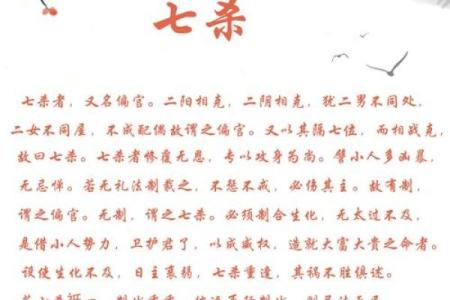 七杀
七杀者，又名偏官。二阳相克，二阴相克，犹二男不同处，
二女不同屋，不成配偶故谓之偏官。又以其隔七位，而相战克，
故曰七杀。七杀者惨覆无恩，专以攻身为尚。譬小人多凶暴，
无忌惮。若无礼法制裁之，不惩不戒，必伤其主。故有制，
谓之偏官。无制，谓之七杀。必须制合生化，无太过不及，
是借小人势力，卫护君了，以成威权，造就大富大贵之命者。
设使生化不及，日主衰弱，七杀重逢，其祸不胜俱述。